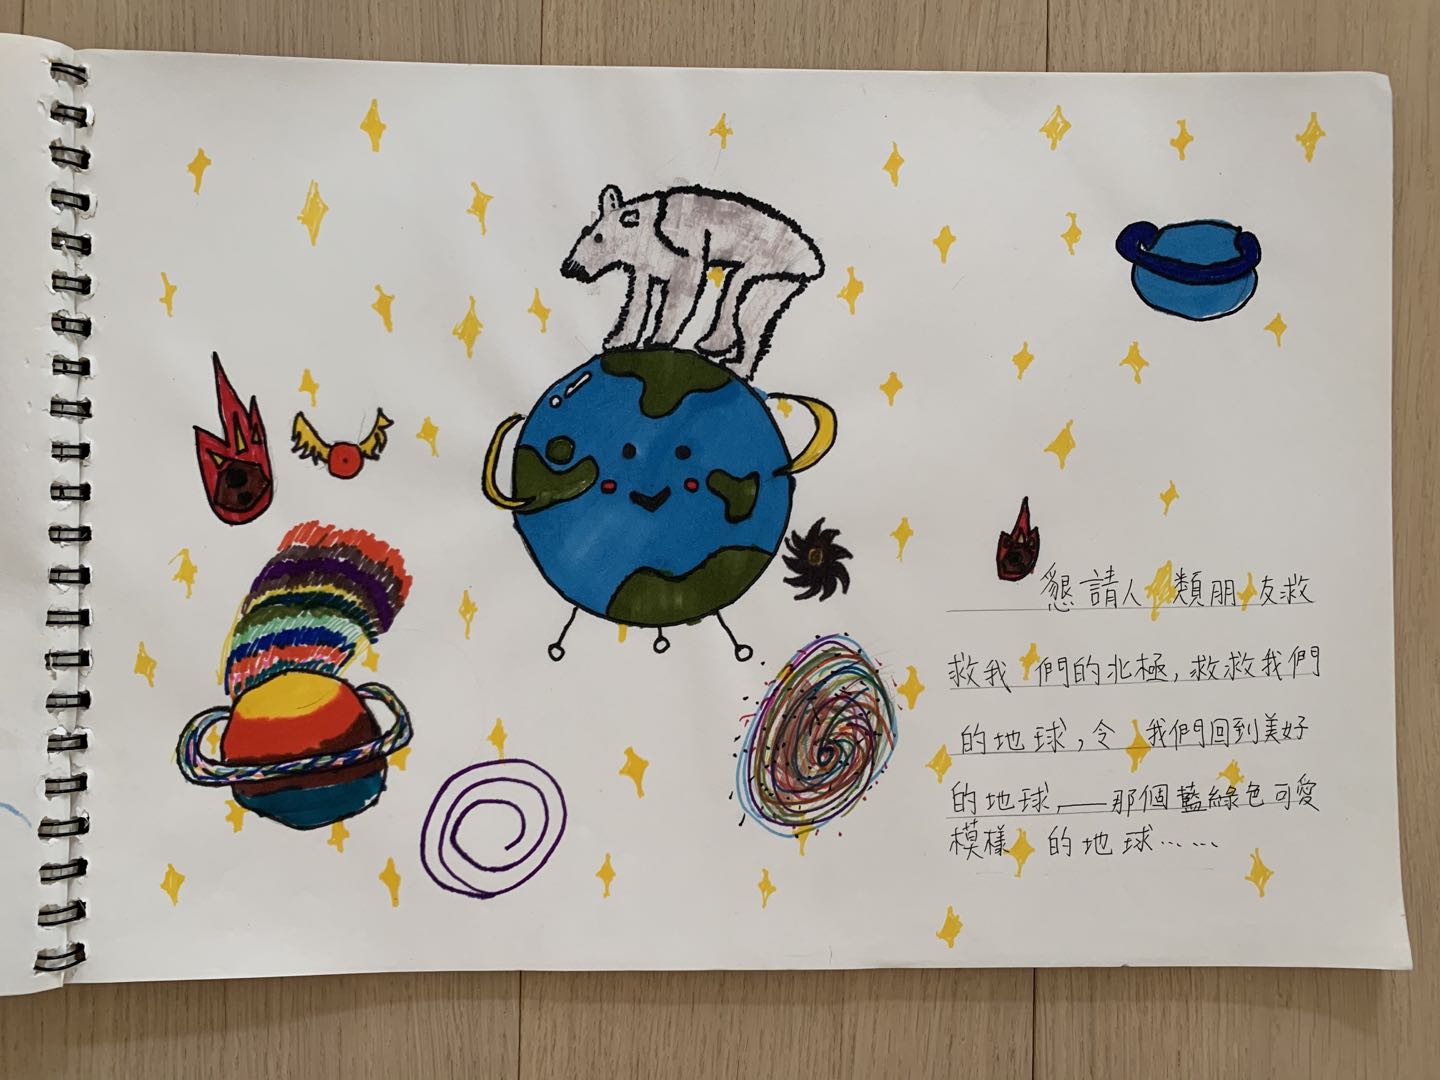 懇請人類朋友救
救我們的北極,救救我們
的地球,令我們回到美好
的地球,——那個藍綠色可愛
模樣的地球……